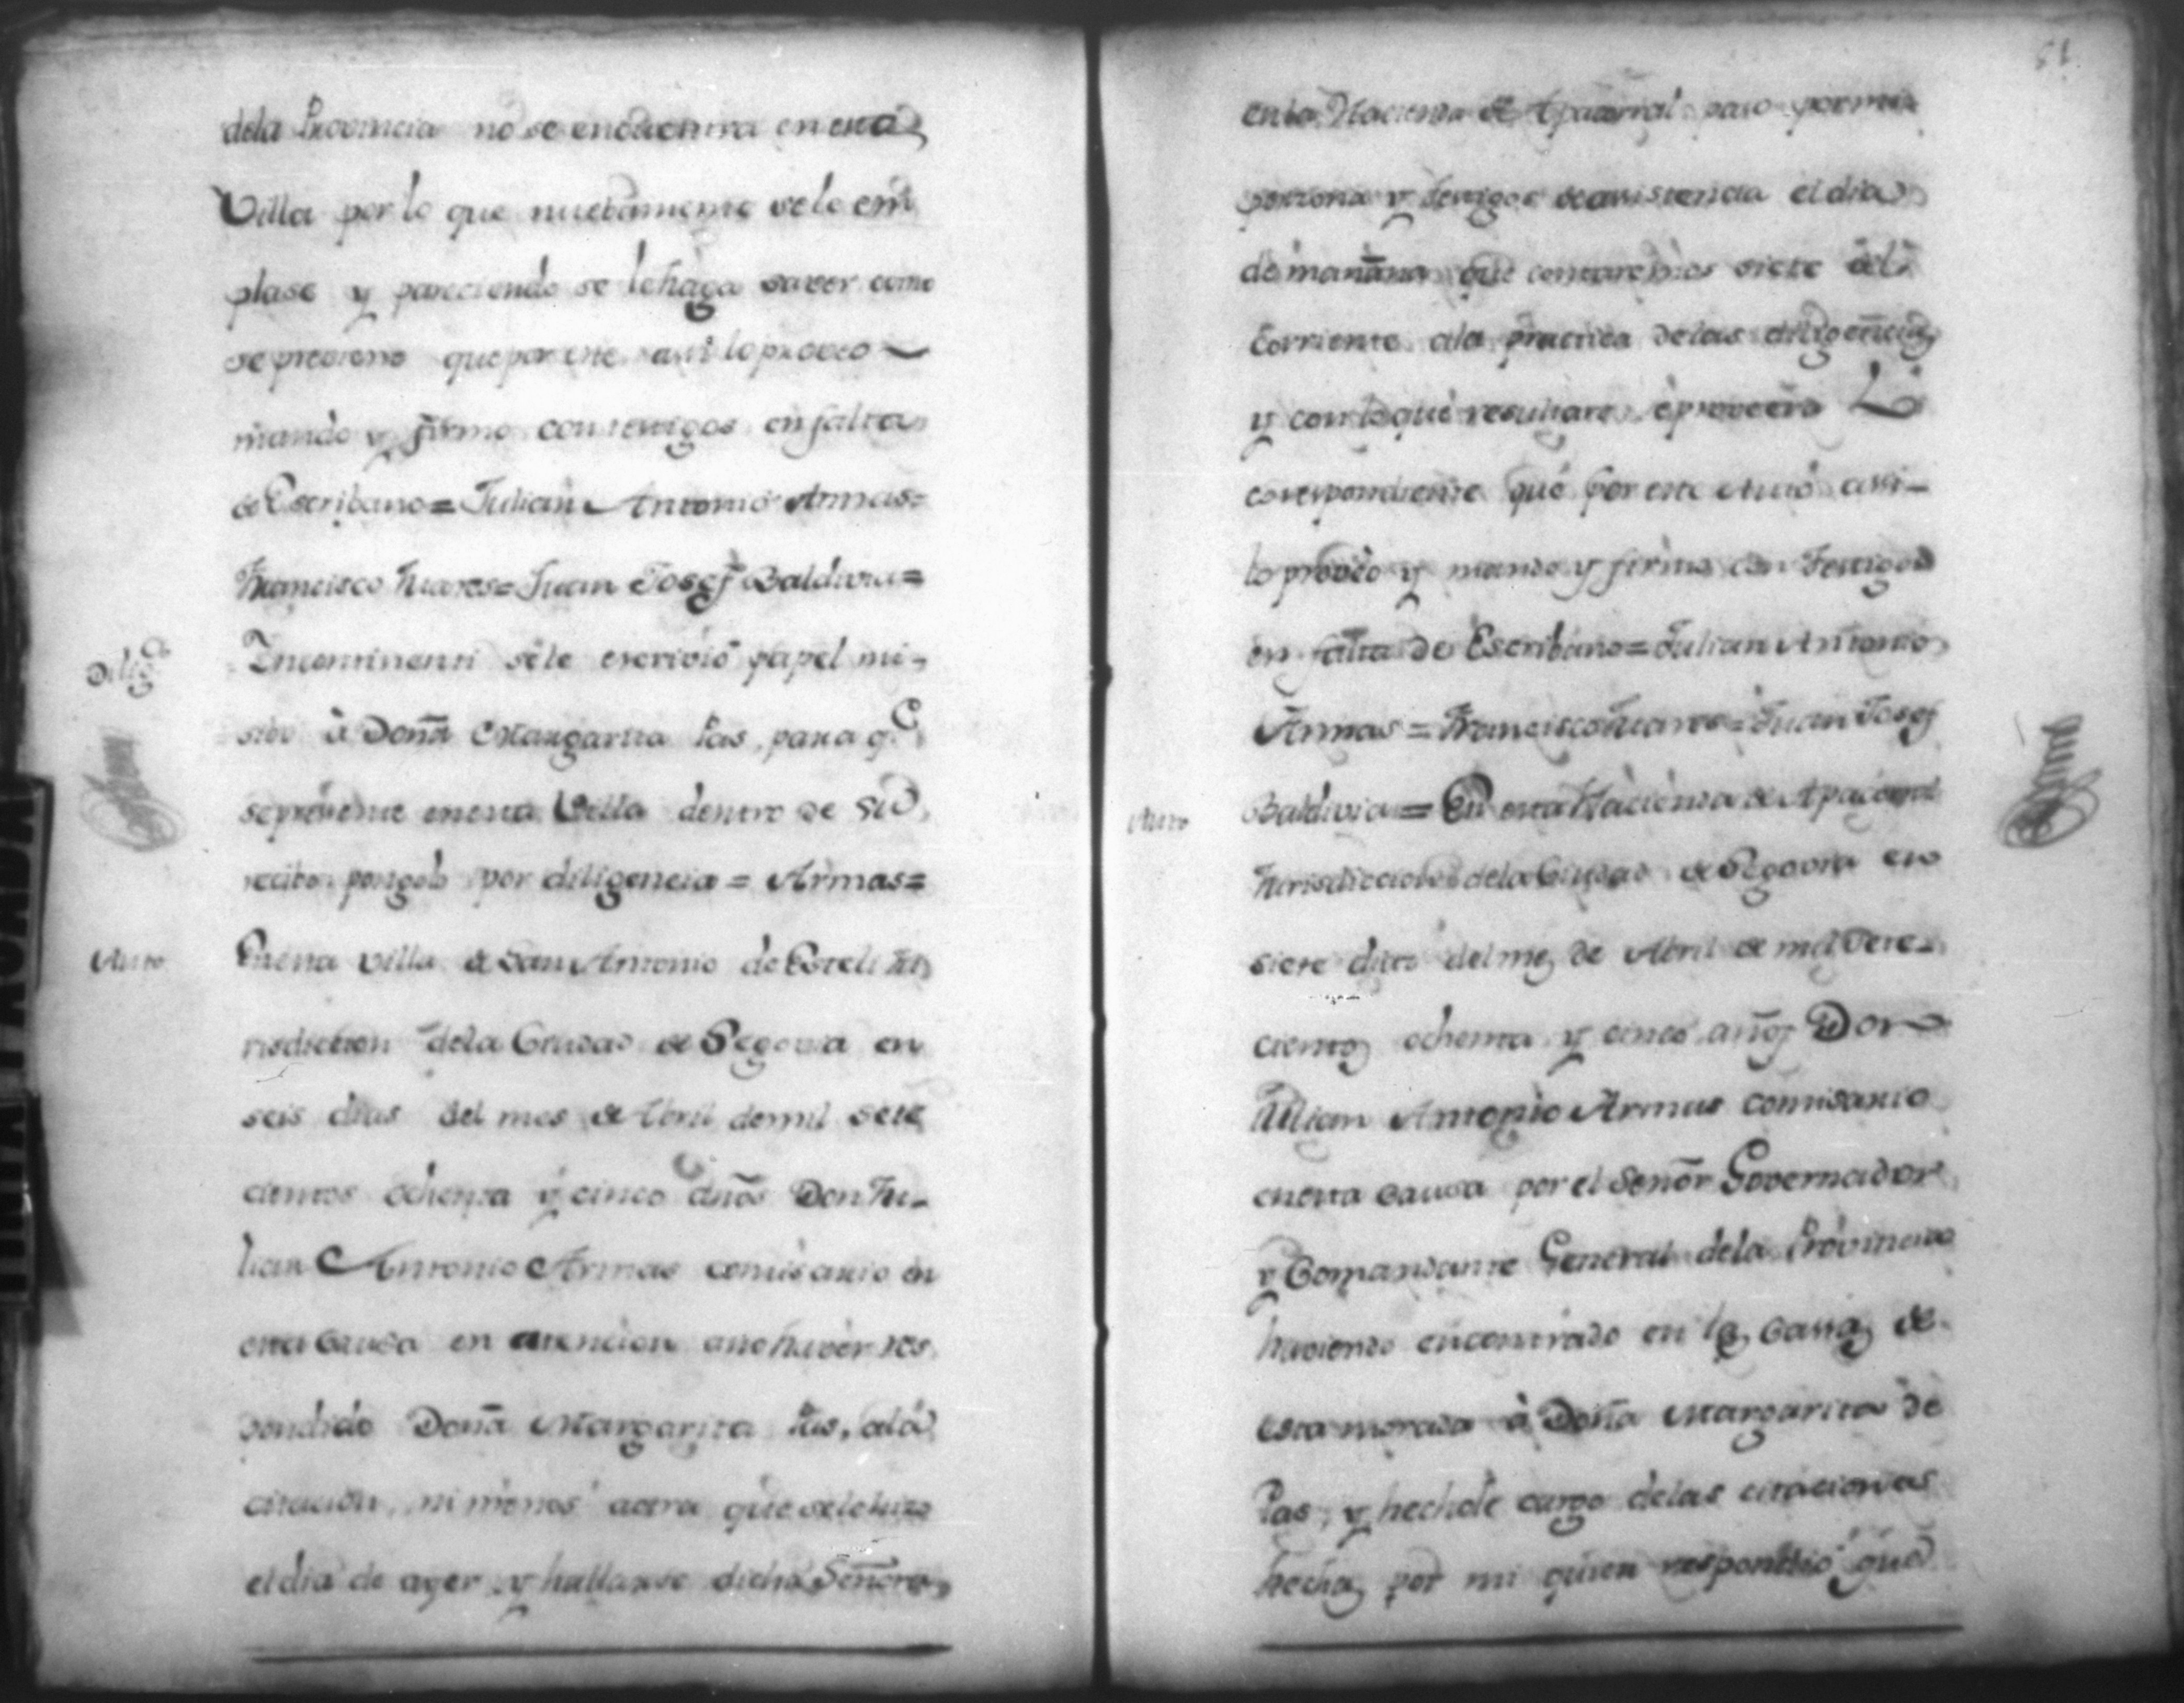 dela Provincia no se encuentra en esta
Villa por lo que nuebamente sele em
plase y pareciendo se le haga saver como
se previene que por este assi lo proveo
mando y firmo con testigos en falta
de Escribano = Julian Antonio Armas =
Francisco Juares = Juan Josef Baldivia =
Dilig.a
Incontinenti sele escrivió papel mi-
sibo à Doña Margarita Pas, para q.e
se presente en esta Villa dentro de su
recibo pongolo por diligencia = Armas =
Auto
En esta Villa de San Antonio de Esteli Ju
risdiccion dela Ciudad de Segovia en
seis dias del mes de Abril de mil sete
cientos ochenta y cinco años Don Ju-
lian Antonio Armas comisario en
esta causa en atencion ano haver res
pondido Doña Margarita Pas, ala
citacion, ni menos aotra que sele hizo
el dia de ayer y hallarse dicha Señora
51
en la Hacienda de Apacorral paso por mi
persona y testigos de asistencia el dia
de mañana que contaremos siete del
corriente ala practica delas diligencias
y con lo que resultare, é proveera Lo
correspondiente que por este Auto assi-
lo proveo y mando y firmo con Testigos
en falta de Escribano = Julian Antonio
Armas = Francisco Juares = Juan Josef
Auto
Baldivia = En esta Hacienda de Apacorral
Jurisdiccion dela Ciudad de Segovia en
siete dias del mes de Abril de mil sete-
cientos ochenta y cinco años Don
Julian Antonio Armas comisario
en esta causa por el Señor Governador
y Comandante General dela Provincia
haviendo encontrado en las casas de
esta morada à Doña Margarita de
Pas, y hechole cargo delas citaciones
hechas por mi quien respondió que